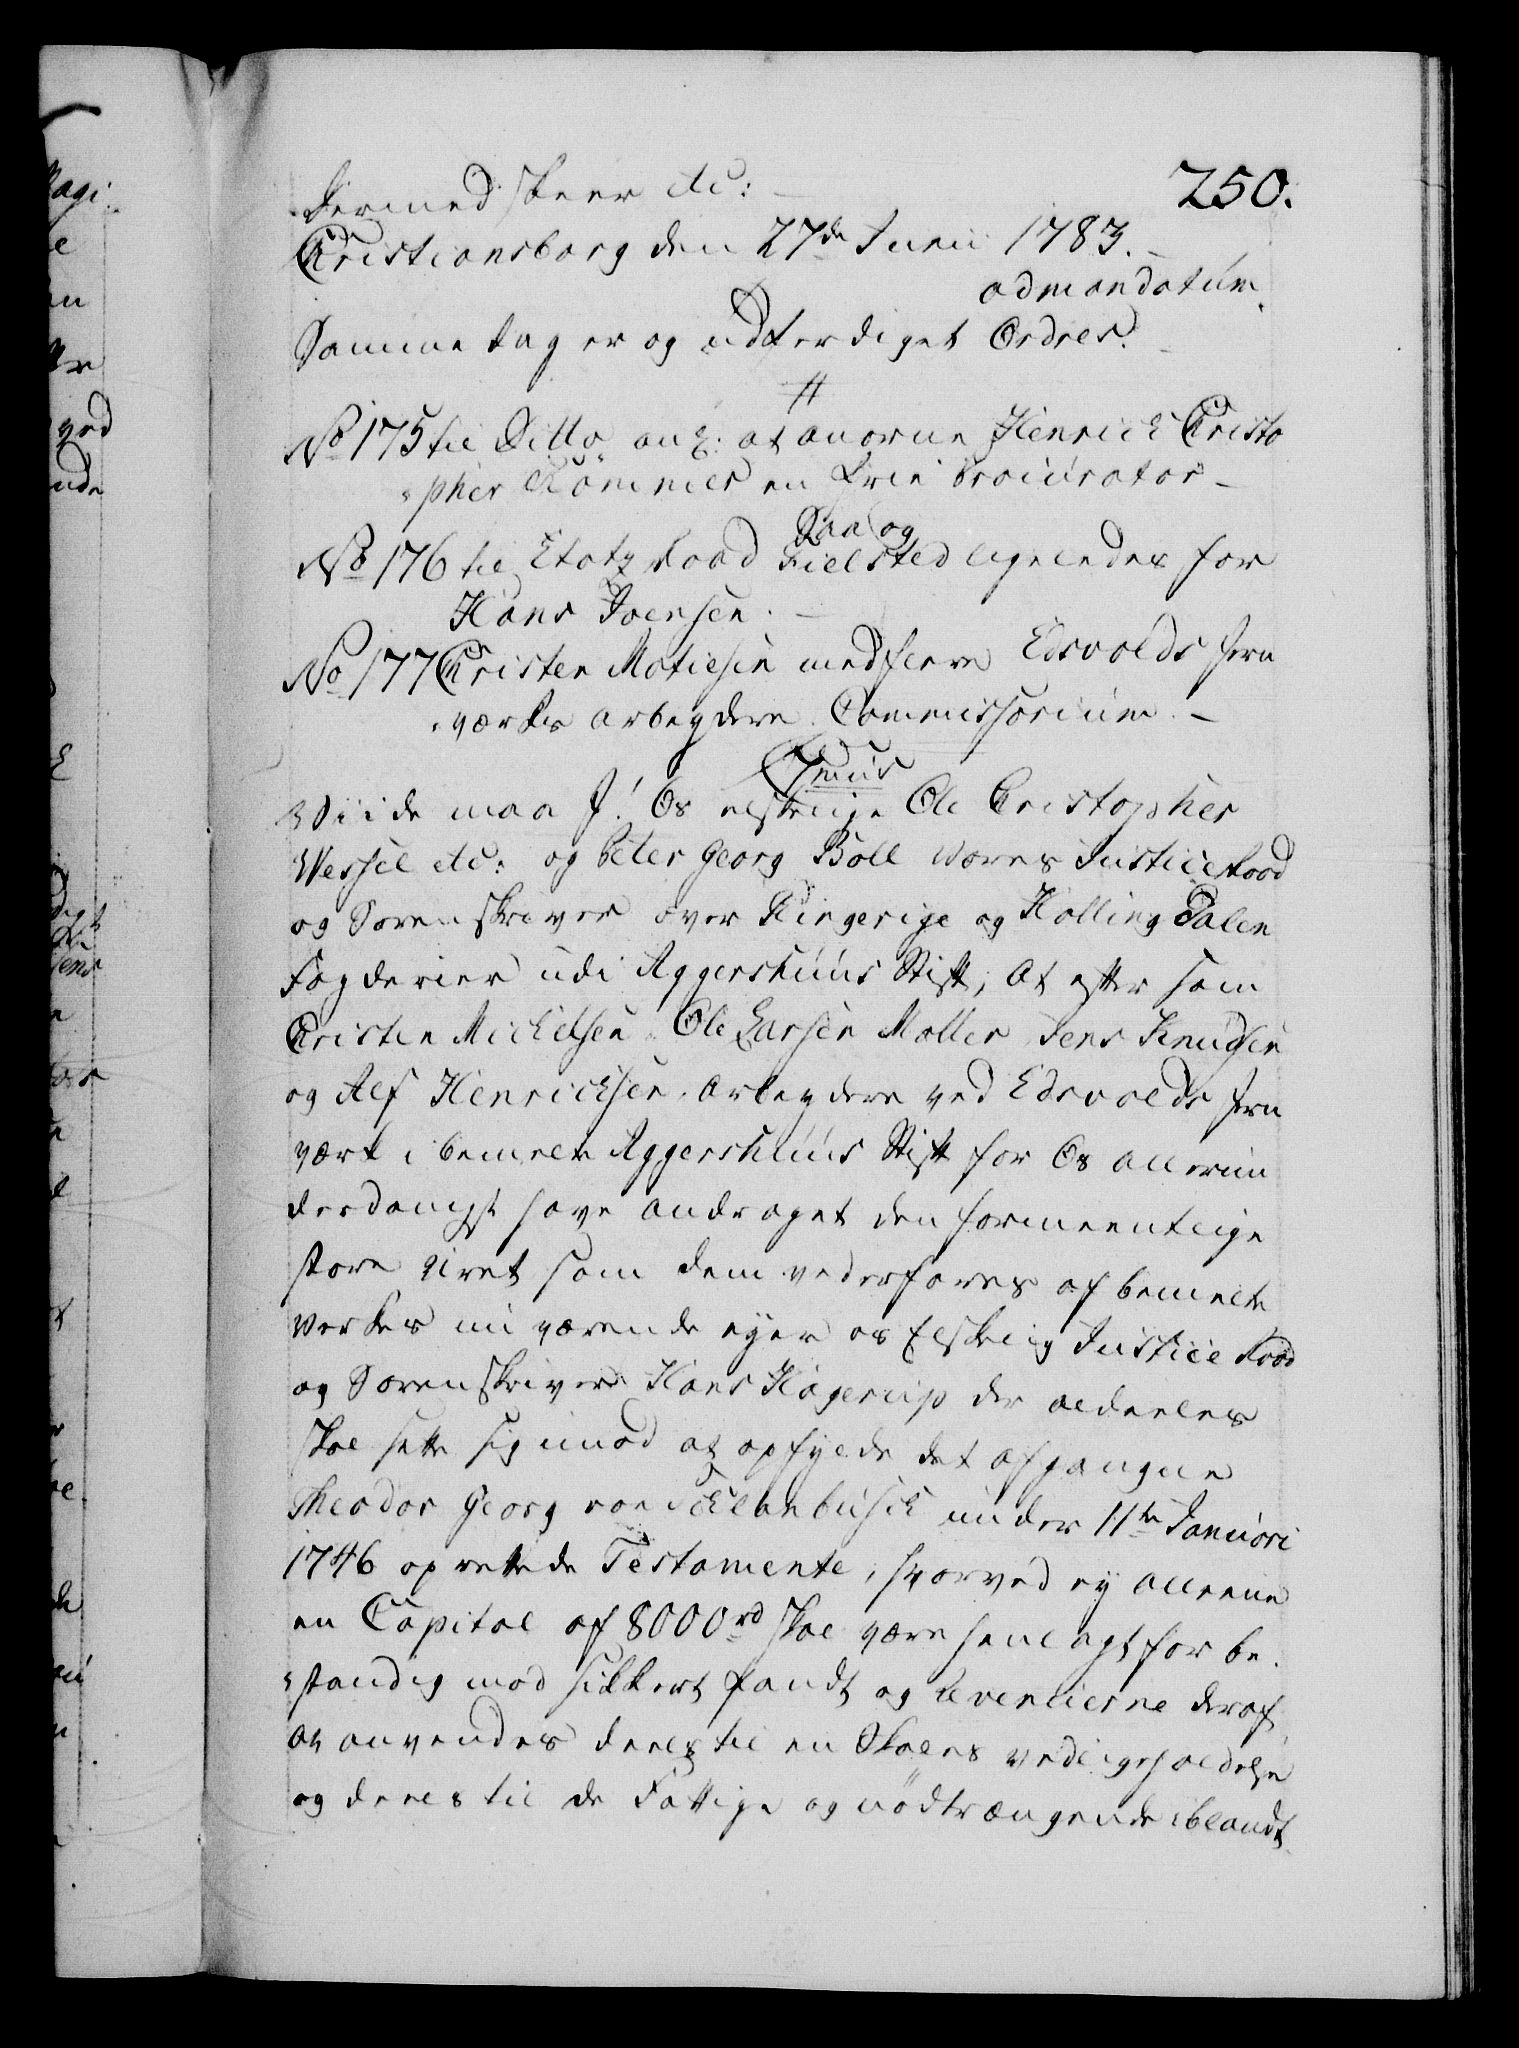 250.
Dermed skeer etc: –
Christiansborg den 27de Junii 1783. –
ad mandatum.
Samme dag er og udferdiget Ordres. –
No 175 til Ditto anl: at anorne Henrich Christo
pher Römmer en frie Procurator –
No 176 til Etatz Raad Dan og
Fielsted ligeledes for
Hans Joensen. –
No 177 Christen Matiesen med fleere Edsvolds Jern
værks arbeydere. Commissorium. –
C 7mus
Wiide maa J! Os elskelige Ole Cristopher
Wessel etc: og Peter Georg Böll vores Justice Raad
og Sorenskriver over Ringerige og Halling Dalen
Fogderier udi Aggershuus Stift; At efter som
Cristen Michelsen, Ole Larsen Moller Jens Knudsen
og Alf Henricksen, Arbeydere ved Edsvolds Jern
værk i bemelte Aggershuus Stift for Os allerun
derdanigst have andraget den formeentlige
store Uret som dem vederfares af bemelte
Verkes nu værende eyer os Elskelig Justice Raad
og Sorenskriver Hans Hagerup der aldeeles
skal sette sig imod at opfylde det afgangne
Theodor Georg von Schlanbusch under 11te Januari
1746 oprettede Testamente, hvorved ey alleene
en Capital af 8000 rd skal være henlagt for be
standig mod sikkert Pandt og Revenuerne deraf
at anvendes deels til en Skoles vedligeholdelse
og deels til de Fattige og nödtrængende iblandt